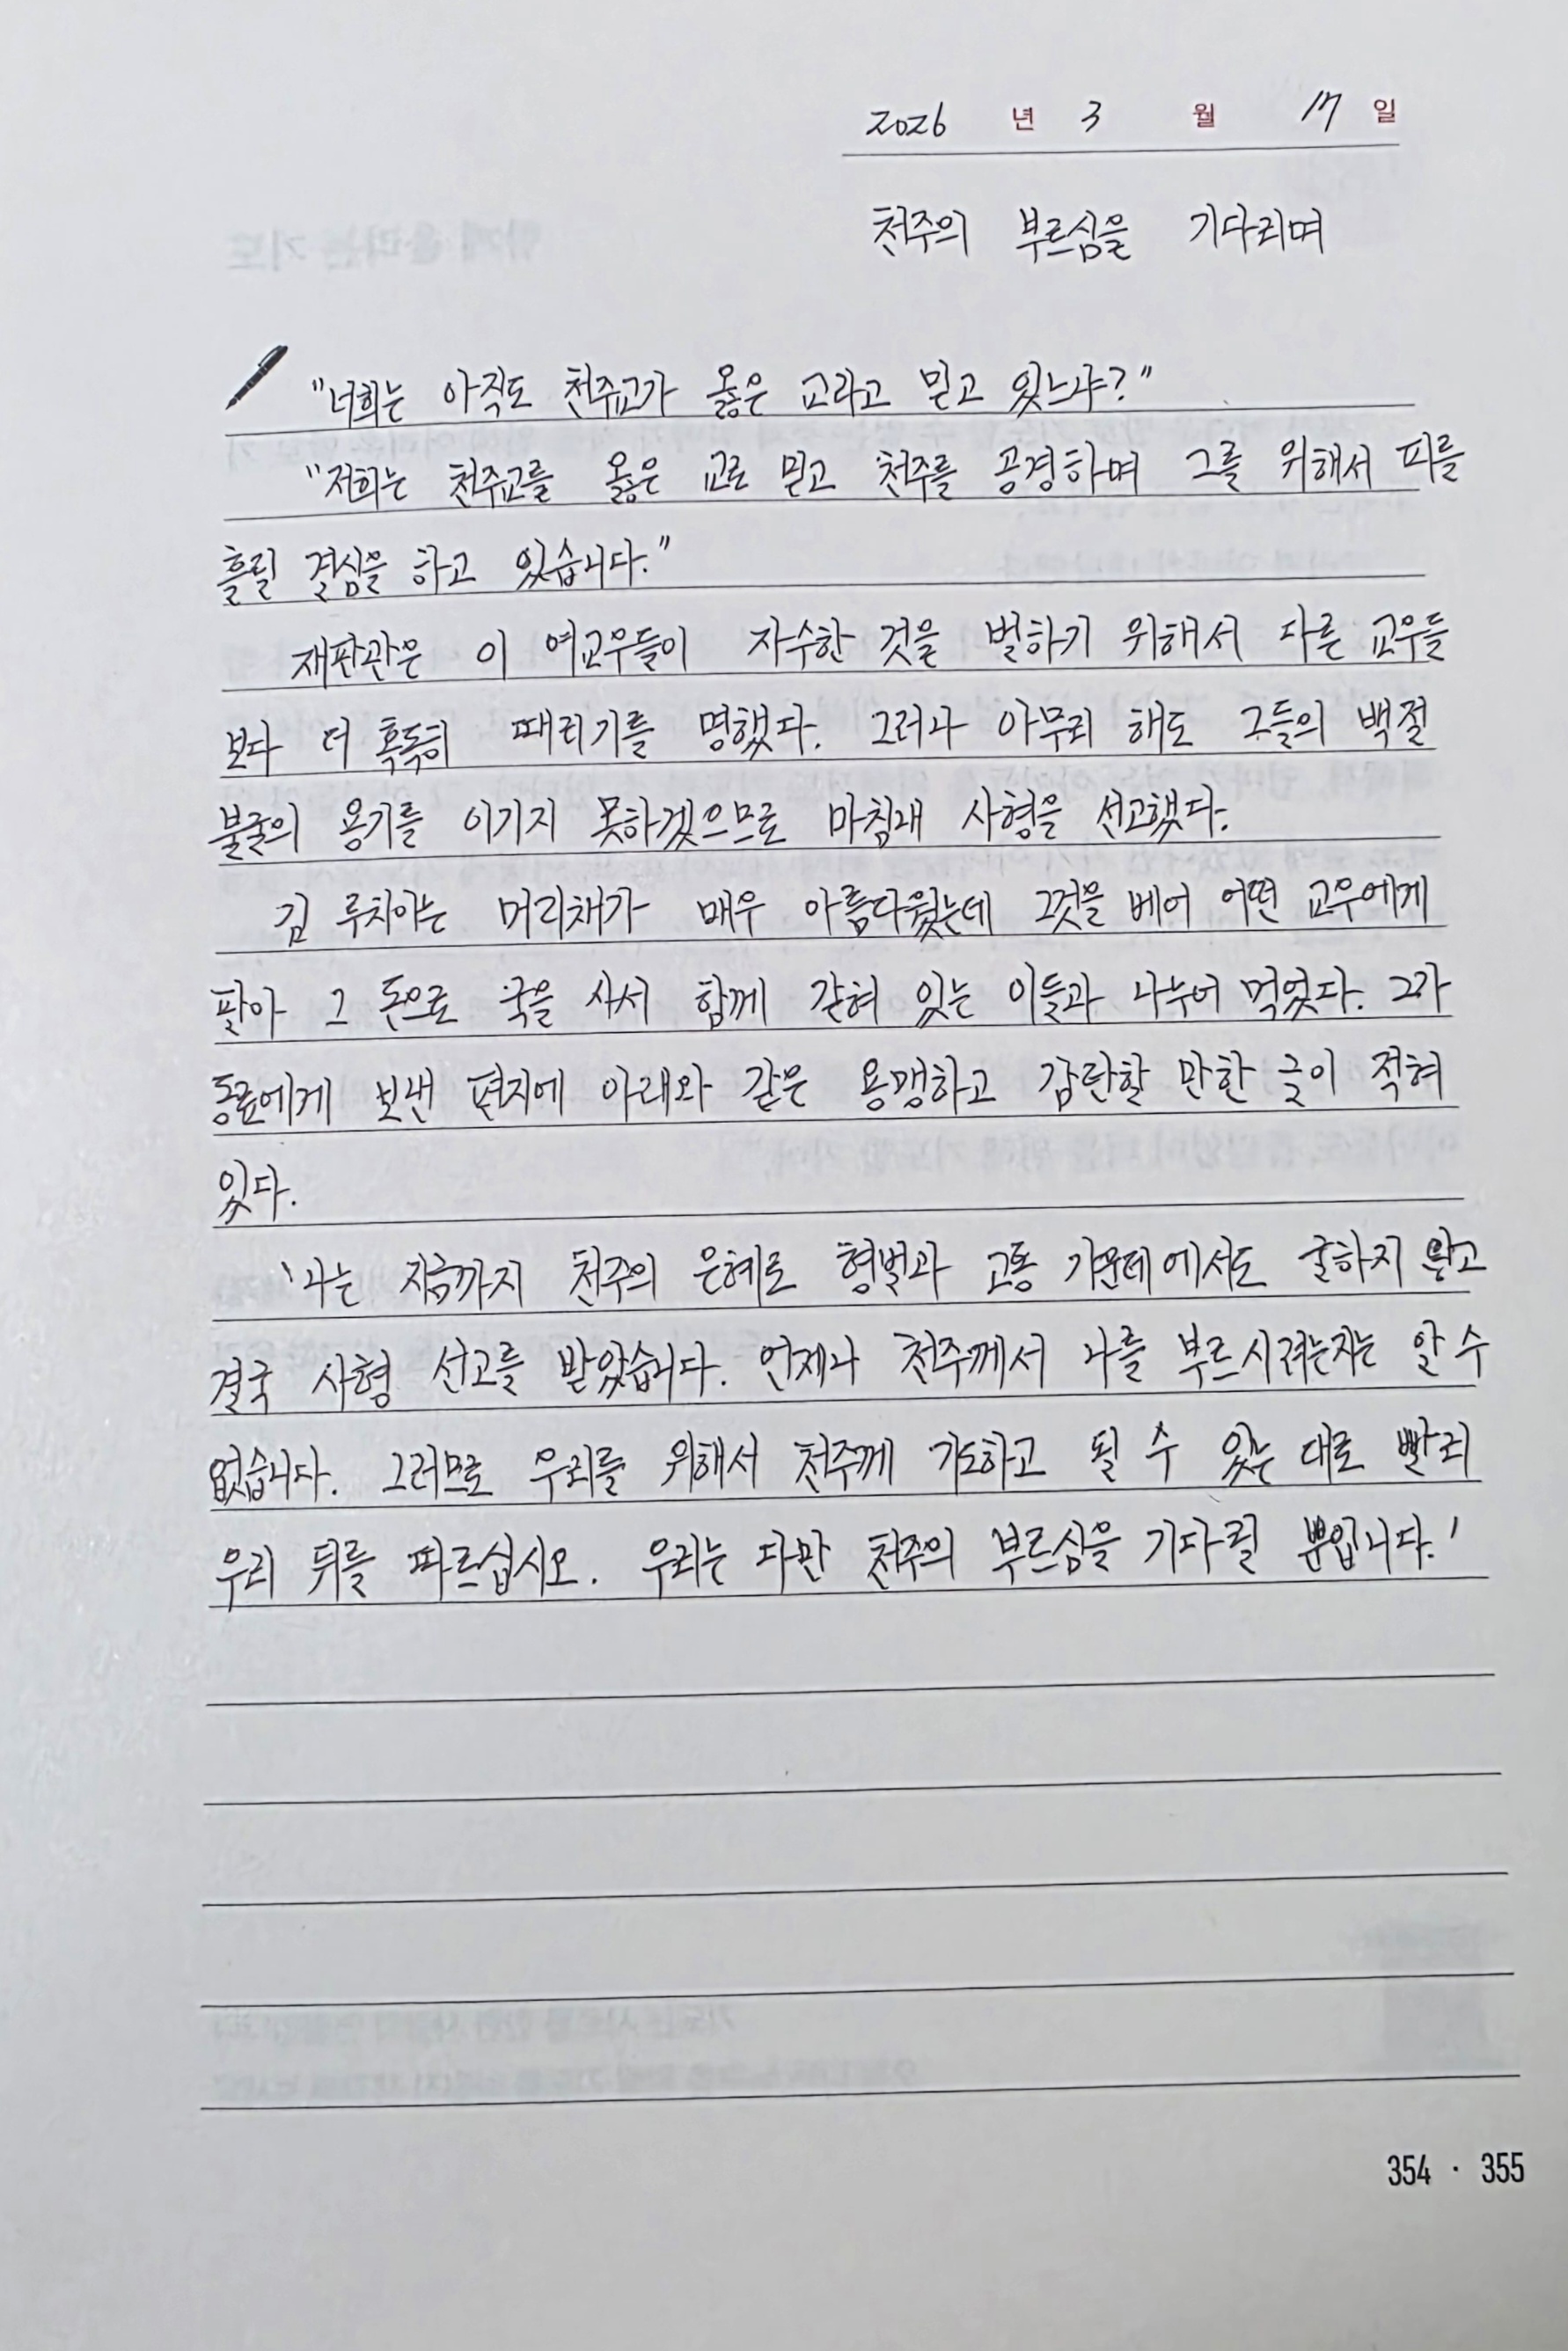 2026 년 3 월 17 일
천주의 부르심을 기다리며
"너희는 아직도 천주교가 옳은 교라고 믿고 있느냐?"
"저희는 천주교를 옳은 교로 믿고 천주를 공경하며 그를 위해서 피를
흘릴 결심을 하고 있습니다."
재판관은 이 여교우들이 자수한 것을 벌하기 위해서 다른 교우들
보다 더 혹독히 때리기를 명했다. 그러나 아무리 해도 그들의 백절
불굴의 용기를 이기지 못하겠으므로 마침내 사형을 선고했다.
김 루치아는 머리채가 매우 아름다웠는데 그것을 베어 어떤 교우에게
팔아 그 돈으로 국을 사서 함께 갇혀 있는 이들과 나누어 먹었다. 그가
동료에게 보낸 편지에 아래와 같은 용맹하고 감탄할 만한 글이 적혀
있다.
'나는 지금까지 천주의 은혜로 형벌과 고통 가운데에서도 굴하지 않고
결국 사형 선고를 받았습니다. 언제나 천주께서 나를 부르시려는지는 알 수
없습니다. 그러므로 우리를 위해서 천주께 기도하고 될 수 있는 대로 빨리
우리 뒤를 따르십시오. 우리는 다만 천주의 부르심을 기다릴 뿐입니다.'
354 · 355